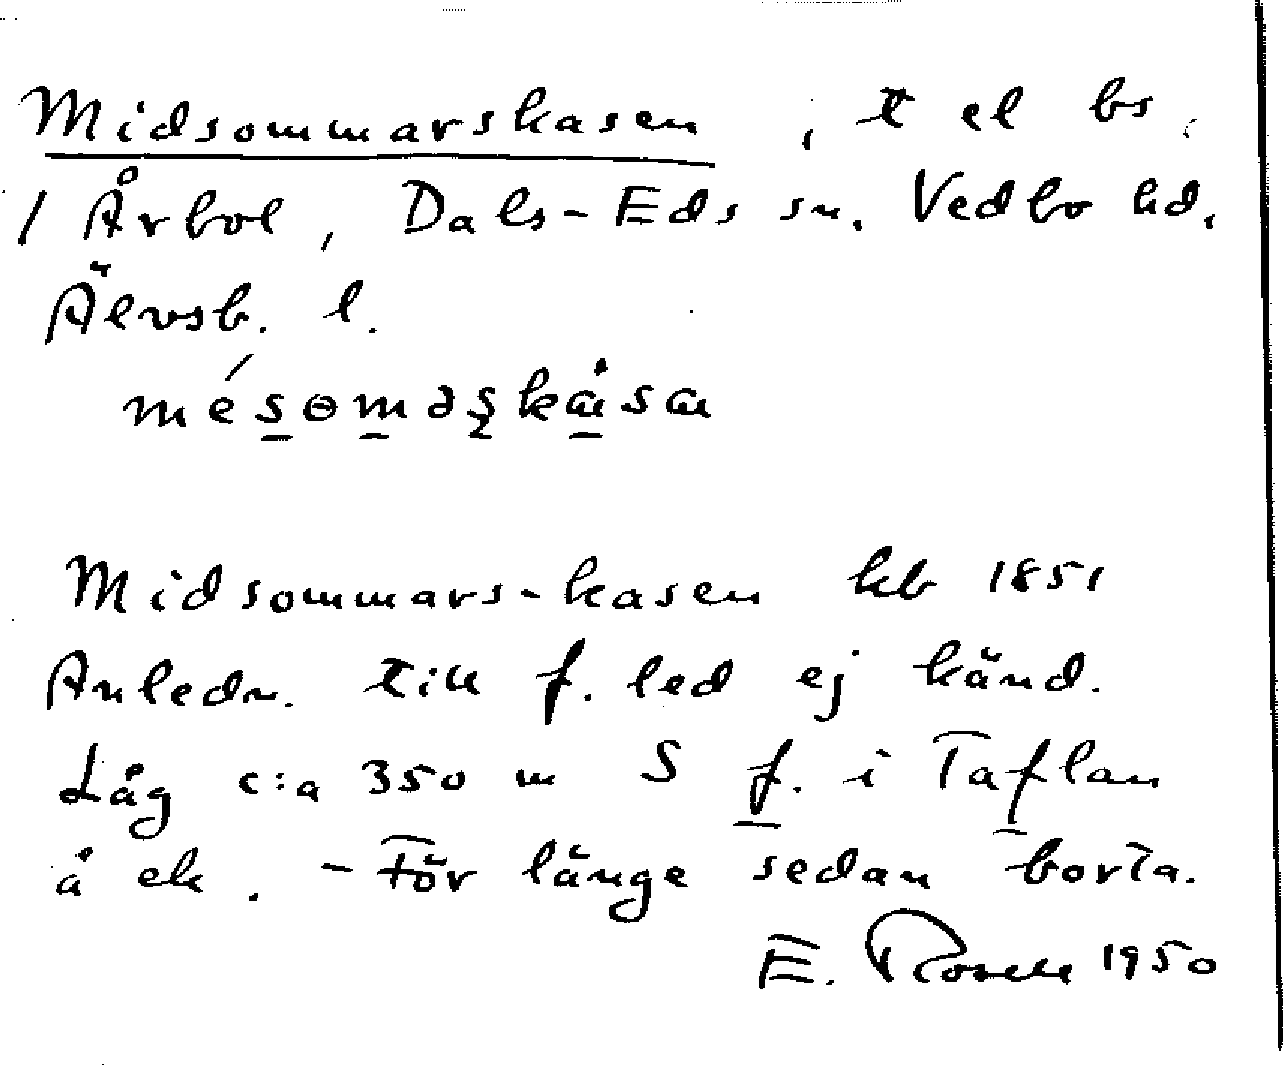 Midsommarskasen, t el bs.
/ Årbol, Dals-Eds sn. Vedbo hd.
Älvsb. l.
mésɵməşkåsa
Midsommars-kasen kb 1851
Anledn. till f. led ej känd.
Låg c:a 350 m S f. i Taflan
å ek. - För länge sedan borta.
E. Rosell 1950